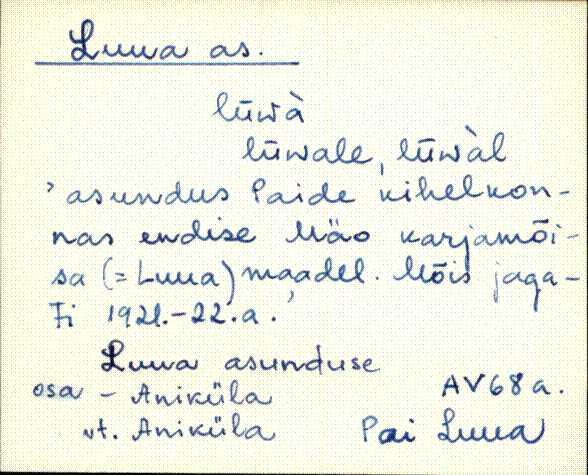 Luua as.
lūwà
lūwale, lūwàl
'asundus Paide kihelkon-
nas endise Mäo karjamõi-
sa (=Luua) maadel. Mõis jaga-
ti 1921.-22.a.'
Luua asunduse
osa - Aniküla
vt. Aniküla
AV68a.
Pai Luua